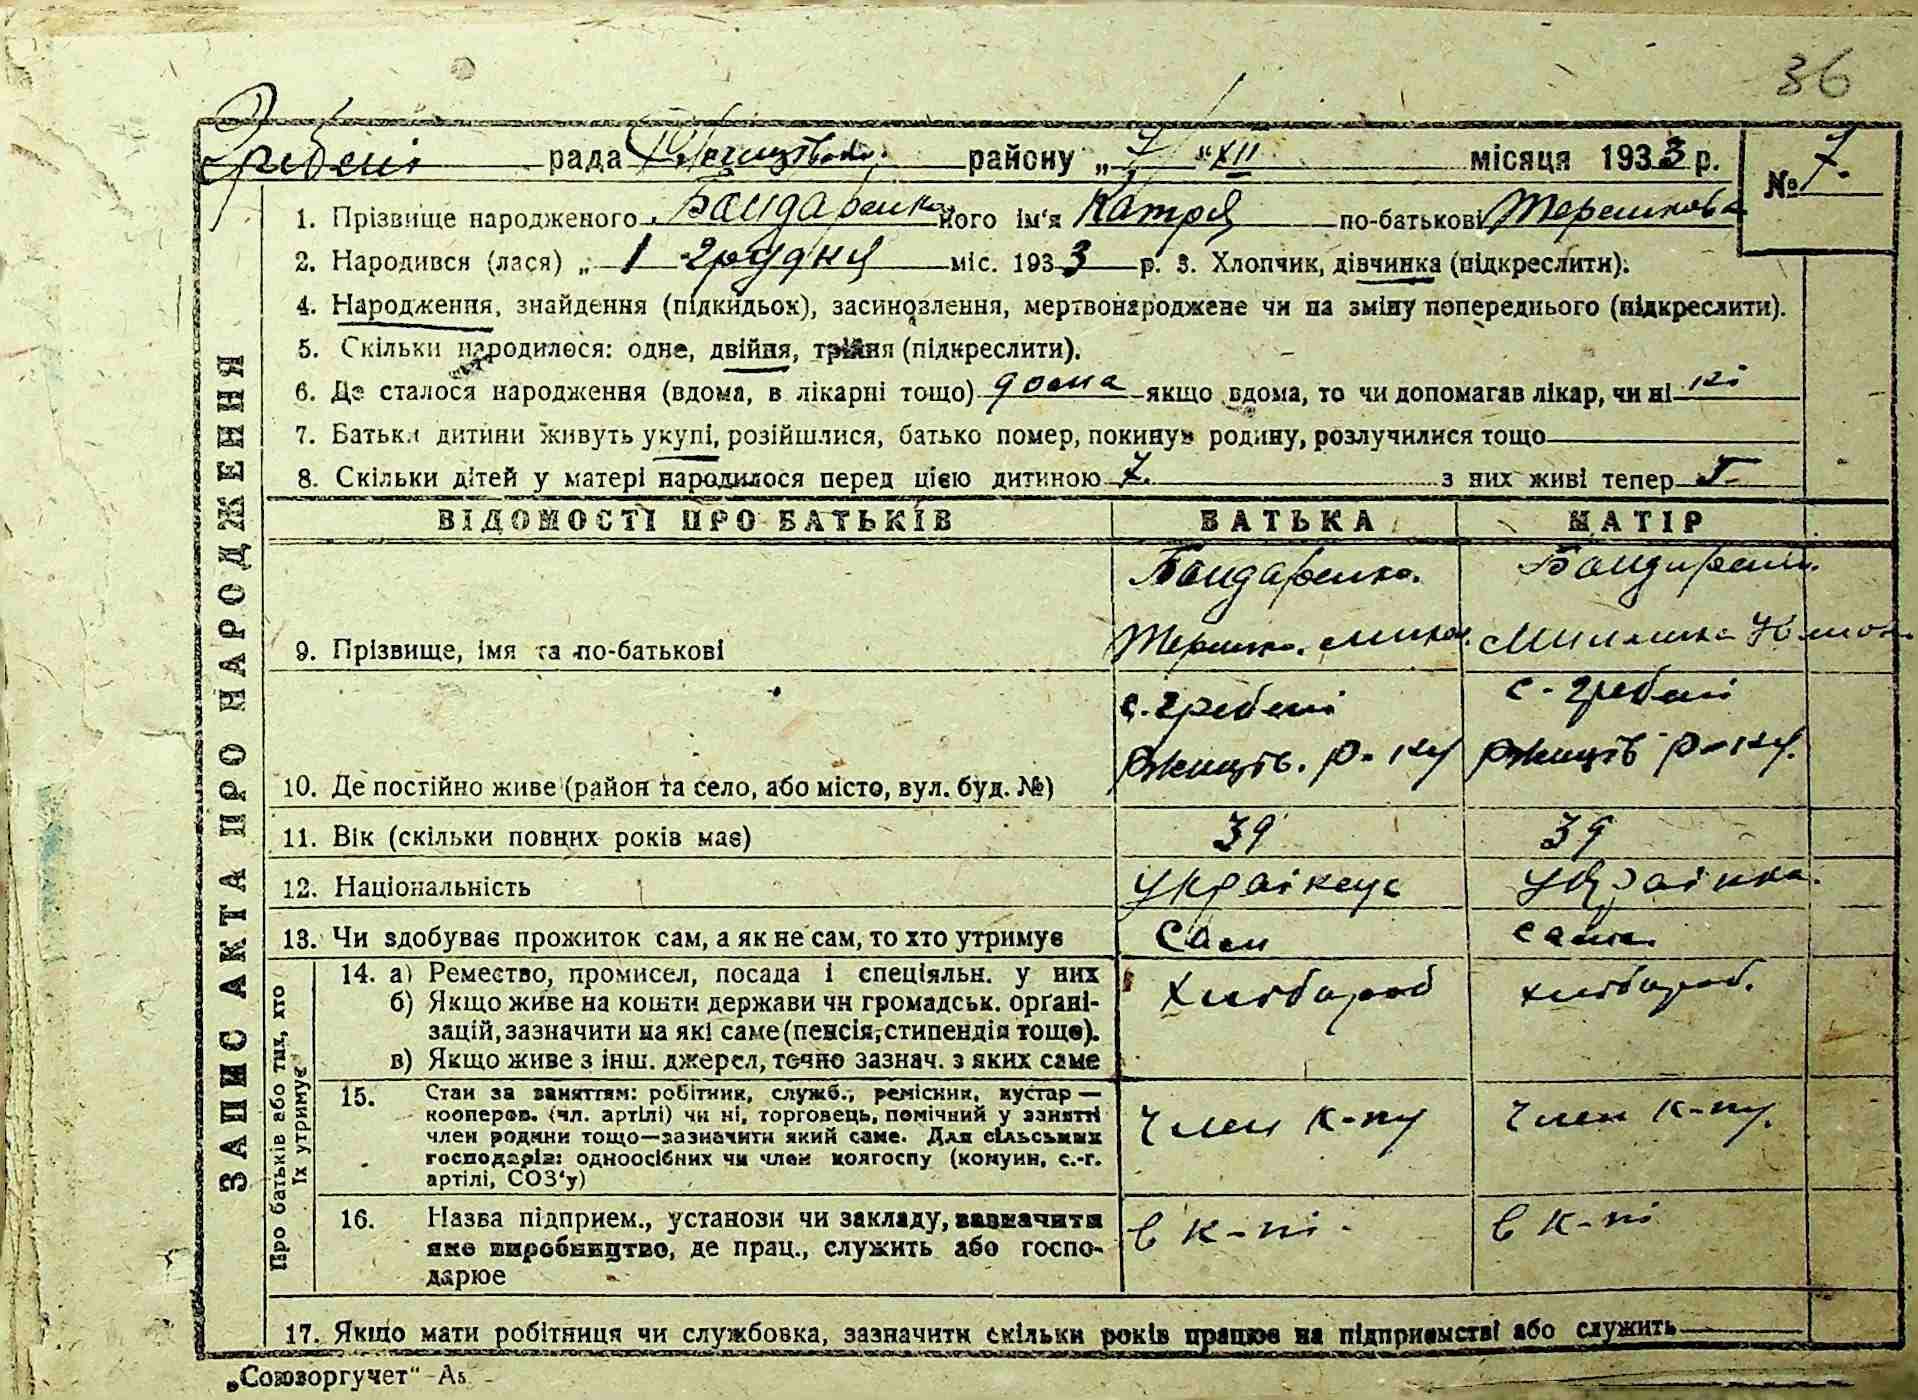 36
Гребені рада Ржищівсько. району „ 7 " XII місяця 1933 р. № 7.
1. Прізвище народженого Бондаренко його ім'я Катря по-батькові Терешкова
2. Народився (лася) „ 1 грудня міс. 1933 р. 3. Хлопчик, дівчинка (підкреслити).
4. Народження, знайдення (підкидьок), засиновлення, мертвонароджене чи на зміну попереднього (підкреслити).
5. Скільки народилося: одне, двійня, трійня (підкреслити).
6. Де сталося народження (вдома, в лікарні тощо) дома якщо вдома, то чи допомагав лікар, чи ні ні
7. Батьки дитини живуть укупі, розійшлися, батько помер, покинув родину, розлучилися тощо
8. Скільки дітей у матері народилося перед цією дитиною 7. з них живі тепер 5
ЗАПИС АКТА ПРО НАРОДЖЕННЯ
ВІДОМОСТІ ПРО БАТЬКІВ БАТЬКА МАТІР
Бондаренко. Бондаренко.
9. Прізвище, імя та по-батькові Терешко.
с. Гребені с. Гребені
Ржищів. р-ну Ржищів р-ну.
10. Де постійно живе (район та село, або місто, вул. буд. №)
11. Вік (скільки повних років має) 39 39
12. Національність українец українка.
13. Чи здобуває прожиток сам, а як не сам, то хто утримує Сам сама.
Про батьків або тих, хто
їх утримує
14. а) Ремество, промисел, посада і спеціяльн. у них хлібороб хлібороб.
б) Якщо живе на кошти держави чи громадськ. орґані-
зацій, зазначити на які саме (пенсія, стипендія тощо).
в) Якщо живе з інш. джерел, точно зазнач. з яких саме
15. Стан за заняттям: робітник, служб., ремісник, кустар —
кооперов. (чл. артілі) чи ні, торговець, помічний у занятті
член родини тощо—зазначити який саме. Для сільських
господарів: одноосібних чи член колгоспу (комуни, с.-г.
артілі, СОЗ'у) член к-пу член к-пу.
16. Назва підприєм., установи чи закладу, зазначити
яке виробництво, де прац., служить або госпо-
дарює в к-пі в к-пі
17. Якщо мати робітниця чи службовка, зазначити скільки років працює на підприємстві або служить
„Союзоргучет" А5